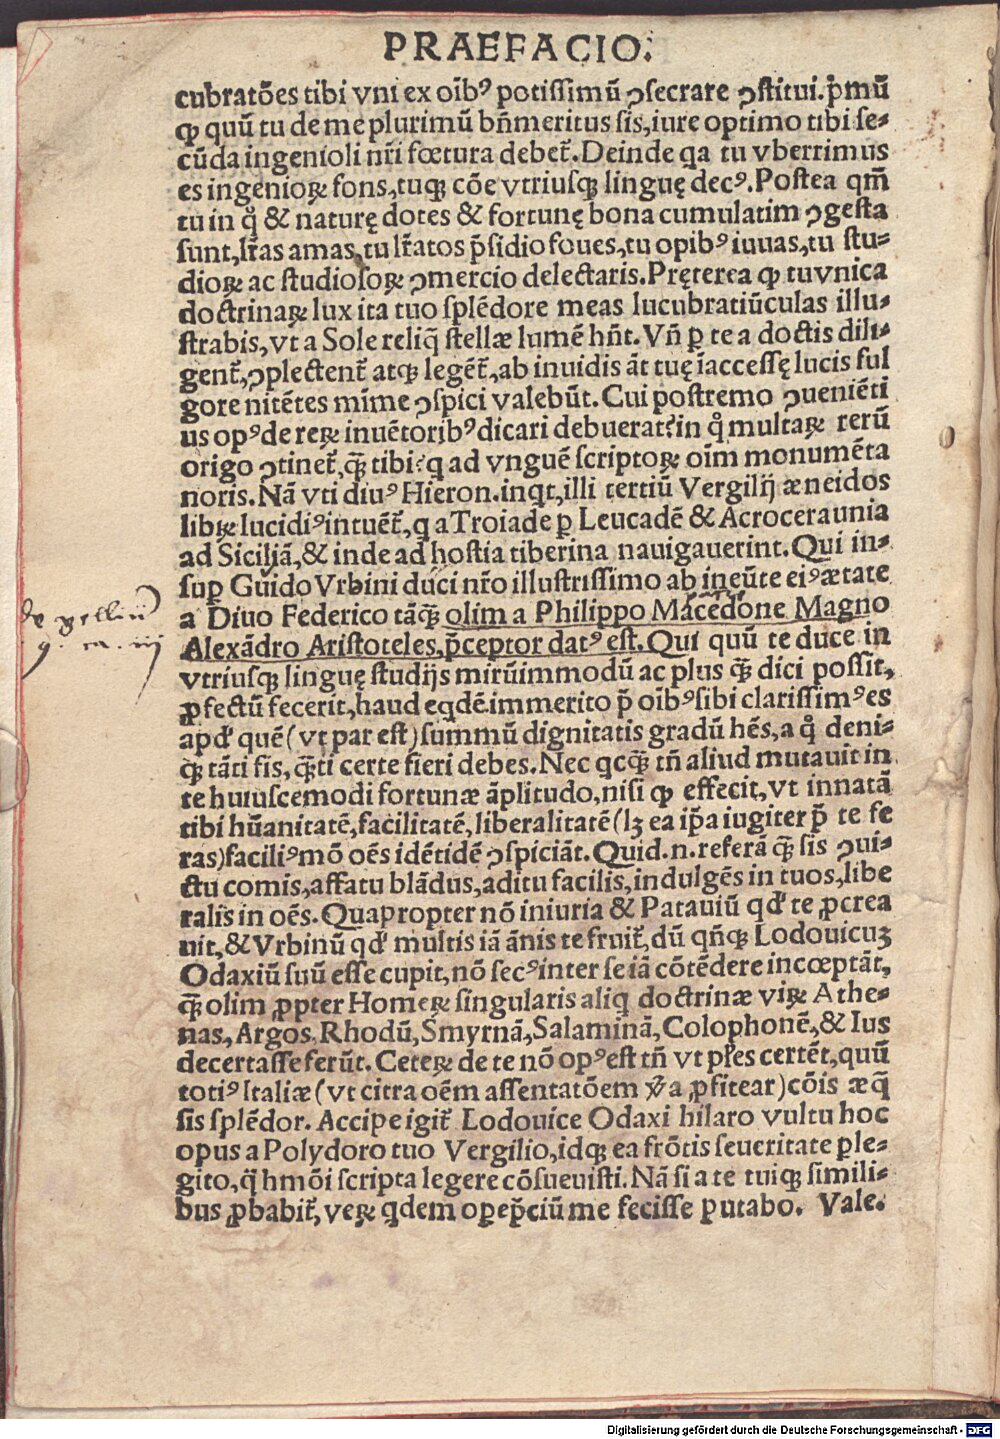 PRAEFACIO.
cubratões tibi vni ex oĩbꝰ potissimũ ↄsecrare ↄstitui. p̃mũ
ꝙ quũ tu de me plurimũ bñmeritus sis, iure optimo tibi se-
cũda ingenioli nr̃i fœtura debet̃. Deinde qa tu vberrimus
es ingenioꝝ fons, tuqꝫ cõe vtriusqꝫ linguę decꝰ. Postea qm̃
tu in q̊ & naturę dotes & fortunę bona cumulatim ↄgesta
sunt, lr̃as amas, tu lr̃atos p̃sidio foues, tu opibꝰ iuuas, tu stu-
dioꝝ ac studiosoꝝ ↄmercio delectaris. Pręterea ꝙ tu vnica
doctrinaꝝ lux ita tuo splẽdore meas lucubratiũculas illu-
strabis, vt a Sole reliq̃ stellæ lumẽ hñt. Vñ ꝑ te a doctis dili-
gent̃, ↄplectent̃ atqꝫ legẽt̃, ab inuidis ãt tuę ĩaccessę lucis ful
gore nitẽtes mĩme ↄspici valebũt. Cui postremo ↄueniẽti
us opꝰ de reꝝ inuẽtoribꝰ dicari debuerat? in q̊ multaꝝ rerũ
origo ↄtinet̃, q̃ꝫ tibi? q ad vnguẽ scriptoꝝ oĩm monumẽta
noris. Nã vti diuꝰ Hieron. inqt, illi tertiũ Vergilij æneidos
libꝝ lucidiꝰ intuẽt̃, q a Troiade ꝑ Leucadẽ & Acroceraunia
ad Siciliã, & inde ad hostia tiberina nauigauerint. Qui in-
suꝑ Guido Vrbini duci nr̃o illustrissimo ab ineũte eiꝰ ætate
a Diuo Federico tãq̃ꝫ olim a Philippo Macedone Magno
Alexãdro Aristoteles, p̃ceptor datꝰ est. Qui quũ te duce in
vtriusqꝫ linguę studijs mirũimmodũ ac plus q̃ꝫ dici possit,
ꝓfectũ fecerit, haud eqdẽ immerito p̃ oĩbꝰ sibi clarissimꝰ es
apđ quẽ (vt par est) summũ dignitatis gradũ hẽs, a q̊ deni-
q̃ꝫ tãti fis, q̃ꝫti certe fieri debes. Nec qcq̃ꝫ tñ aliud mutauit in
te huiuscemodi fortunæ ãplitudo, nisi ꝙ effecit, vt innatã
tibi hũanitatẽ, facilitatẽ, liberalitatẽ (lꝫ ea ip̃a iugiter p̃ te fe
ras) faciliꝰ mõ oẽs idẽtidẽ ↄspiciãt. Quid .n. referã q̃ꝫ sis ↄui-
ctu comis, affatu blãdus, aditu facilis, indulgẽs in tuos, libe
ralis in oẽs. Quapropter nõ iniuria & Patauiũ qđ te ꝓcrea
uit, & Vrbinũ qđ multis iã ãnis te fruit̃, dũ qñqꝫ Lodouicuꝫ
Odaxiũ suũ esse cupit, nõ secꝰ inter se iã cõtẽdere incœptãt,
q̃ꝫ olim ꝓpter Homeꝝ singularis aliq̃ doctrinæ viꝝ Athe-
nas, Argos, Rhodũ, Smyrnã, Salaminã, Colophonẽ, & Ius
decertasse ferũt. Ceteꝝ de te nõ opꝰ est tñ vt pl̃es certẽt, quũ
totiꝰ Italiæ (vt citra oẽm assentatõem ꝟa ꝓfitear) cõis æq̃
sis splẽdor. Accipe igit̃ Lodouice Odaxi hilaro vultu hoc
opus a Polydoro tuo Vergilio, idqꝫ ea frõtis seueritate ꝑle-
gito, q̃ hmõi scripta legere cõsueuisti. Nã si a te tuiqꝫ simili-
bus ꝓbabit̃, veꝝ qdem oꝑep̃ciũ me fecisse putabo. Vale.
Digitalisierung gefördert durch die Deutsche Forschungsgemeinschaft - DFG